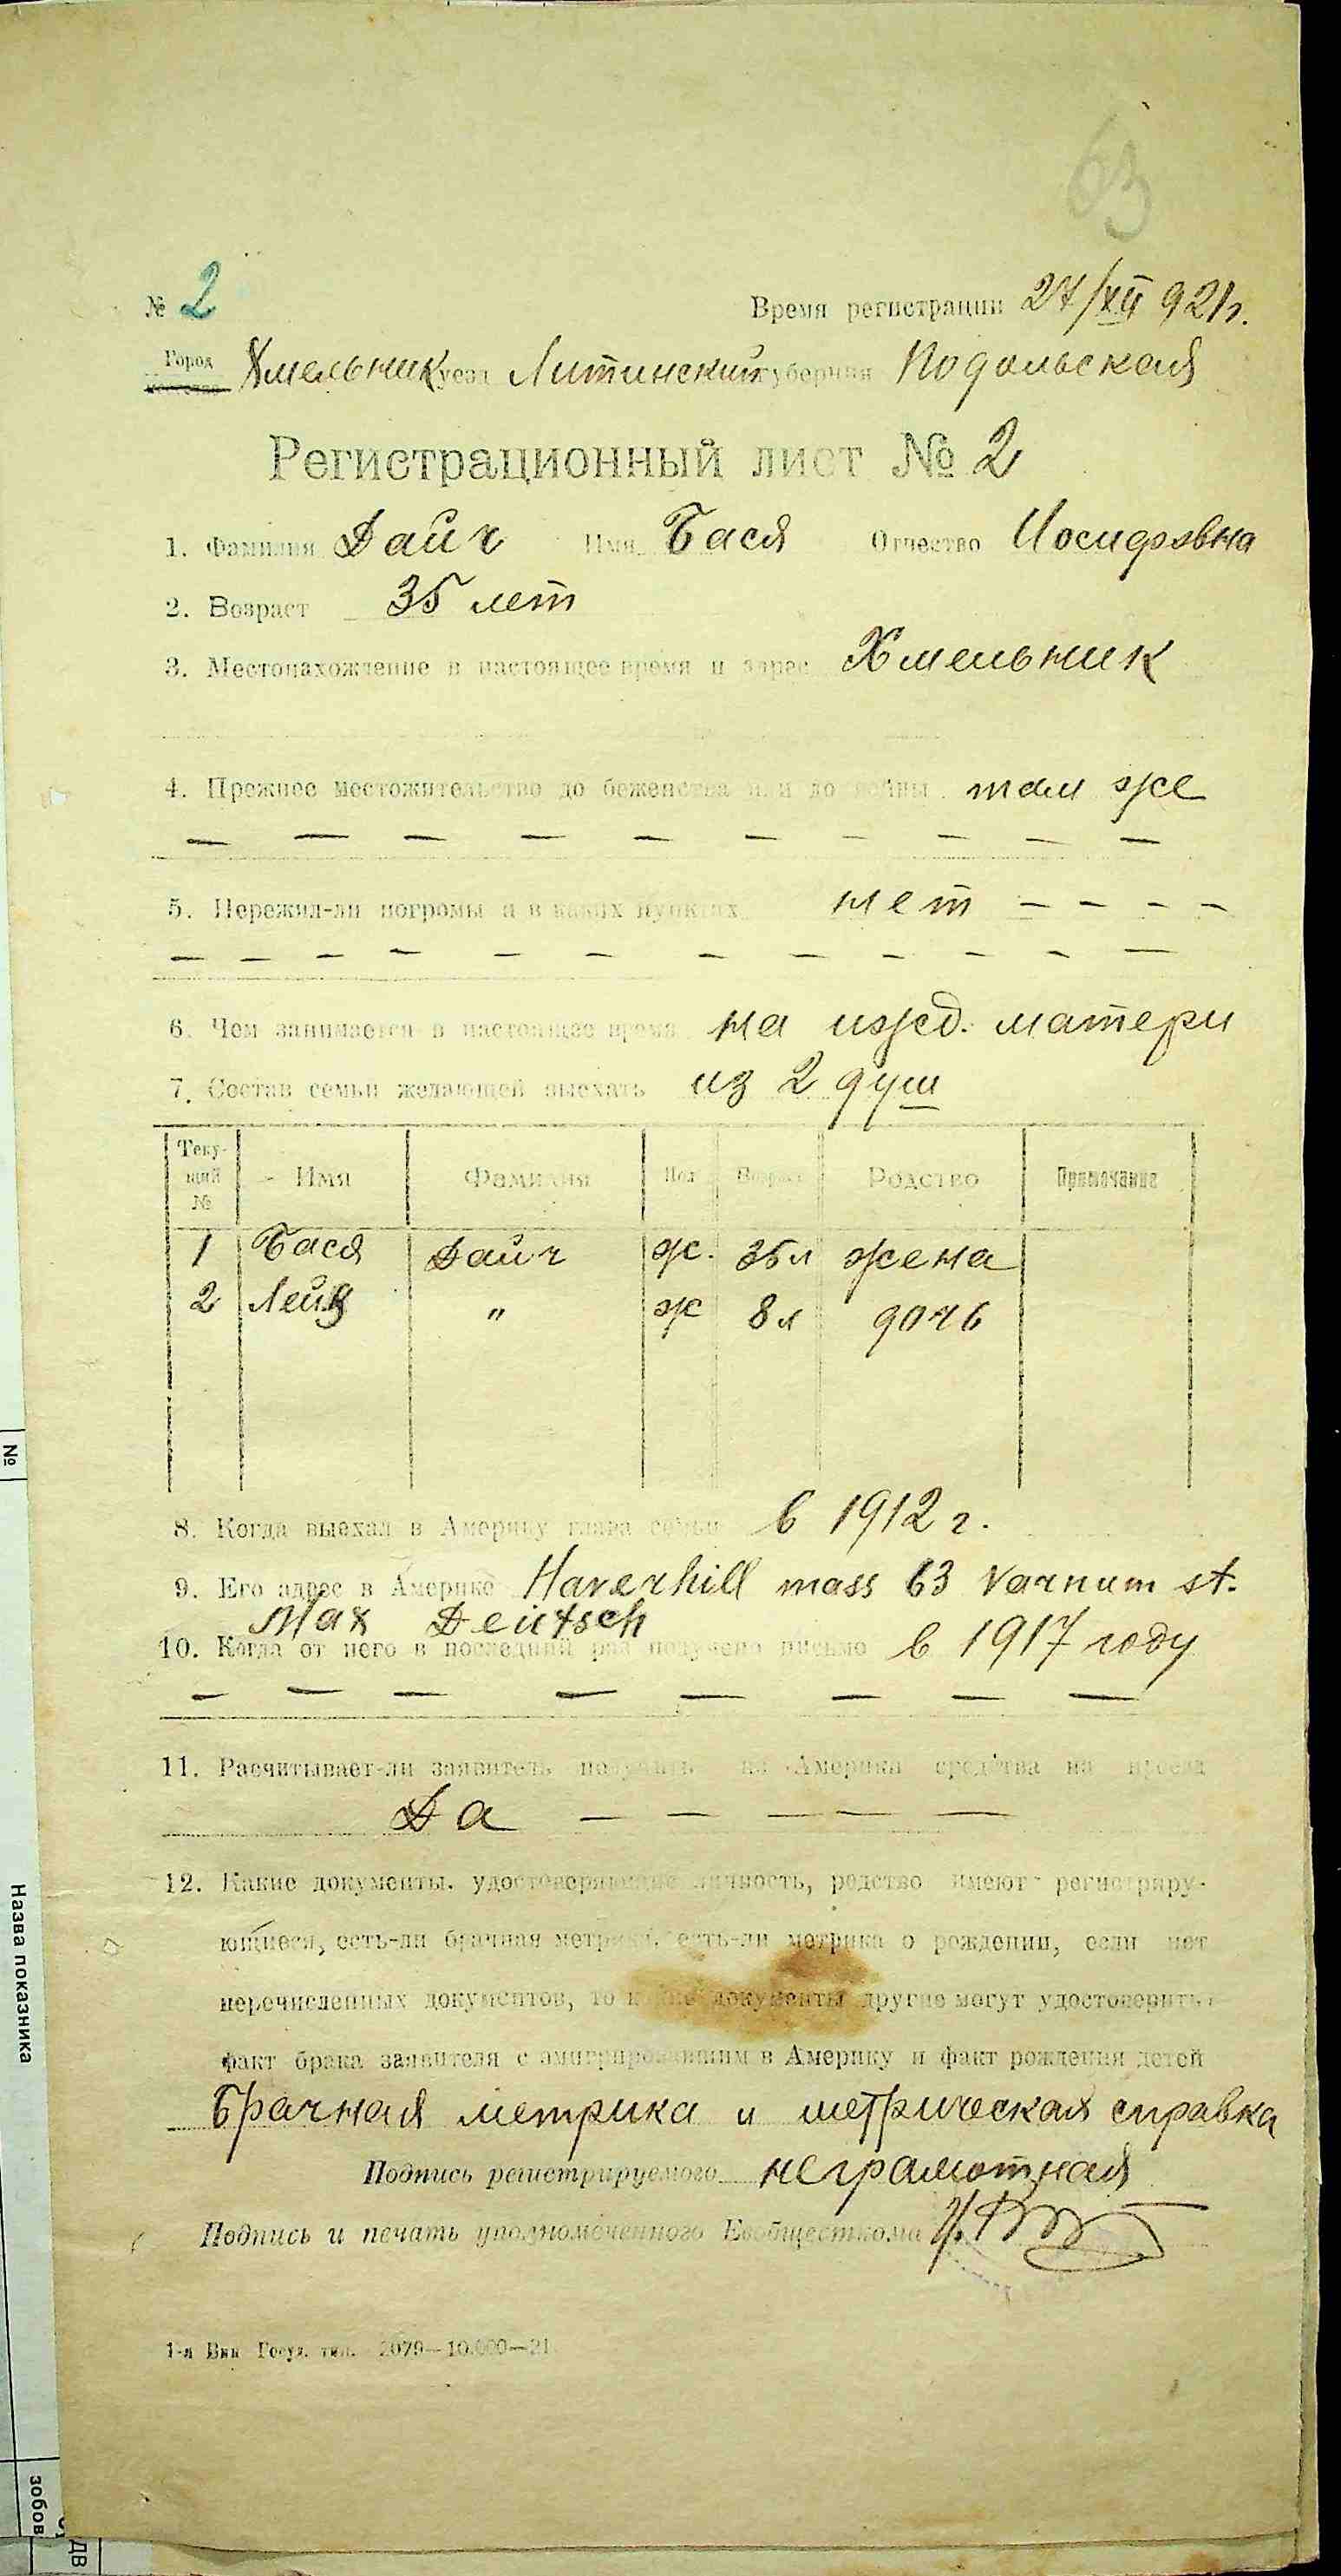 63
№ 2 Время регистрации 27/XII 921г.
Город Хмельник уезд Литинский губерния Подольская
местечко
Регистрационный лист № 2
1. Фамилия Дайч Имя Бася Отчество Иосифовна
2. Возраст 35 лет
3. Местонахождение в настоящее время и адрес Хмельник
4. Прежнее местожительство до беженства или до войны там же
— — — — — — — — — —
5. Пережил-ли погромы и в каких пунктах нет — — — —
— — — — — — — — — — — —
6. Чем занимается в настоящее время на ижд. матери
7. Состав семьи желающей выехать из 2 душ
Теку-
щий
№ Имя Фамилия Пол Возраст Родство Примечание
1 Бася Дайч ж. 35л жена
2 Лейя " ж 8л дочь
8. Когда выехал в Америку глава семьи в 1912 г.
9. Его адрес в Америке Haverhill mass 63 Varnum st.
Max Deutsch
10. Когда от него в последний раз получено письмо в 1917 году
— — — — — — — —
11. Расчитывает-ли заявитель получить из Америки средства на проезд
Да — — — — —
12. Какие документы, удостоверяющие личность, родство имеют регистриру-
ющиеся, есть-ли брачная метрика, есть-ли метрика о рождении, если нет
перечисленных документов, то какие документы другие могут удостоверить
факт брака заявителя с эмигрировавшим в Америку и факт рождения детей
Брачная метрика и метрическая справка
Подпись регистрируемого неграмотная
Подпись и печать уполномоченного Евобщесткома
1-я Вин Госуд. тип. 2079—10.000—21
№
Назва показника
зобов
ДВ